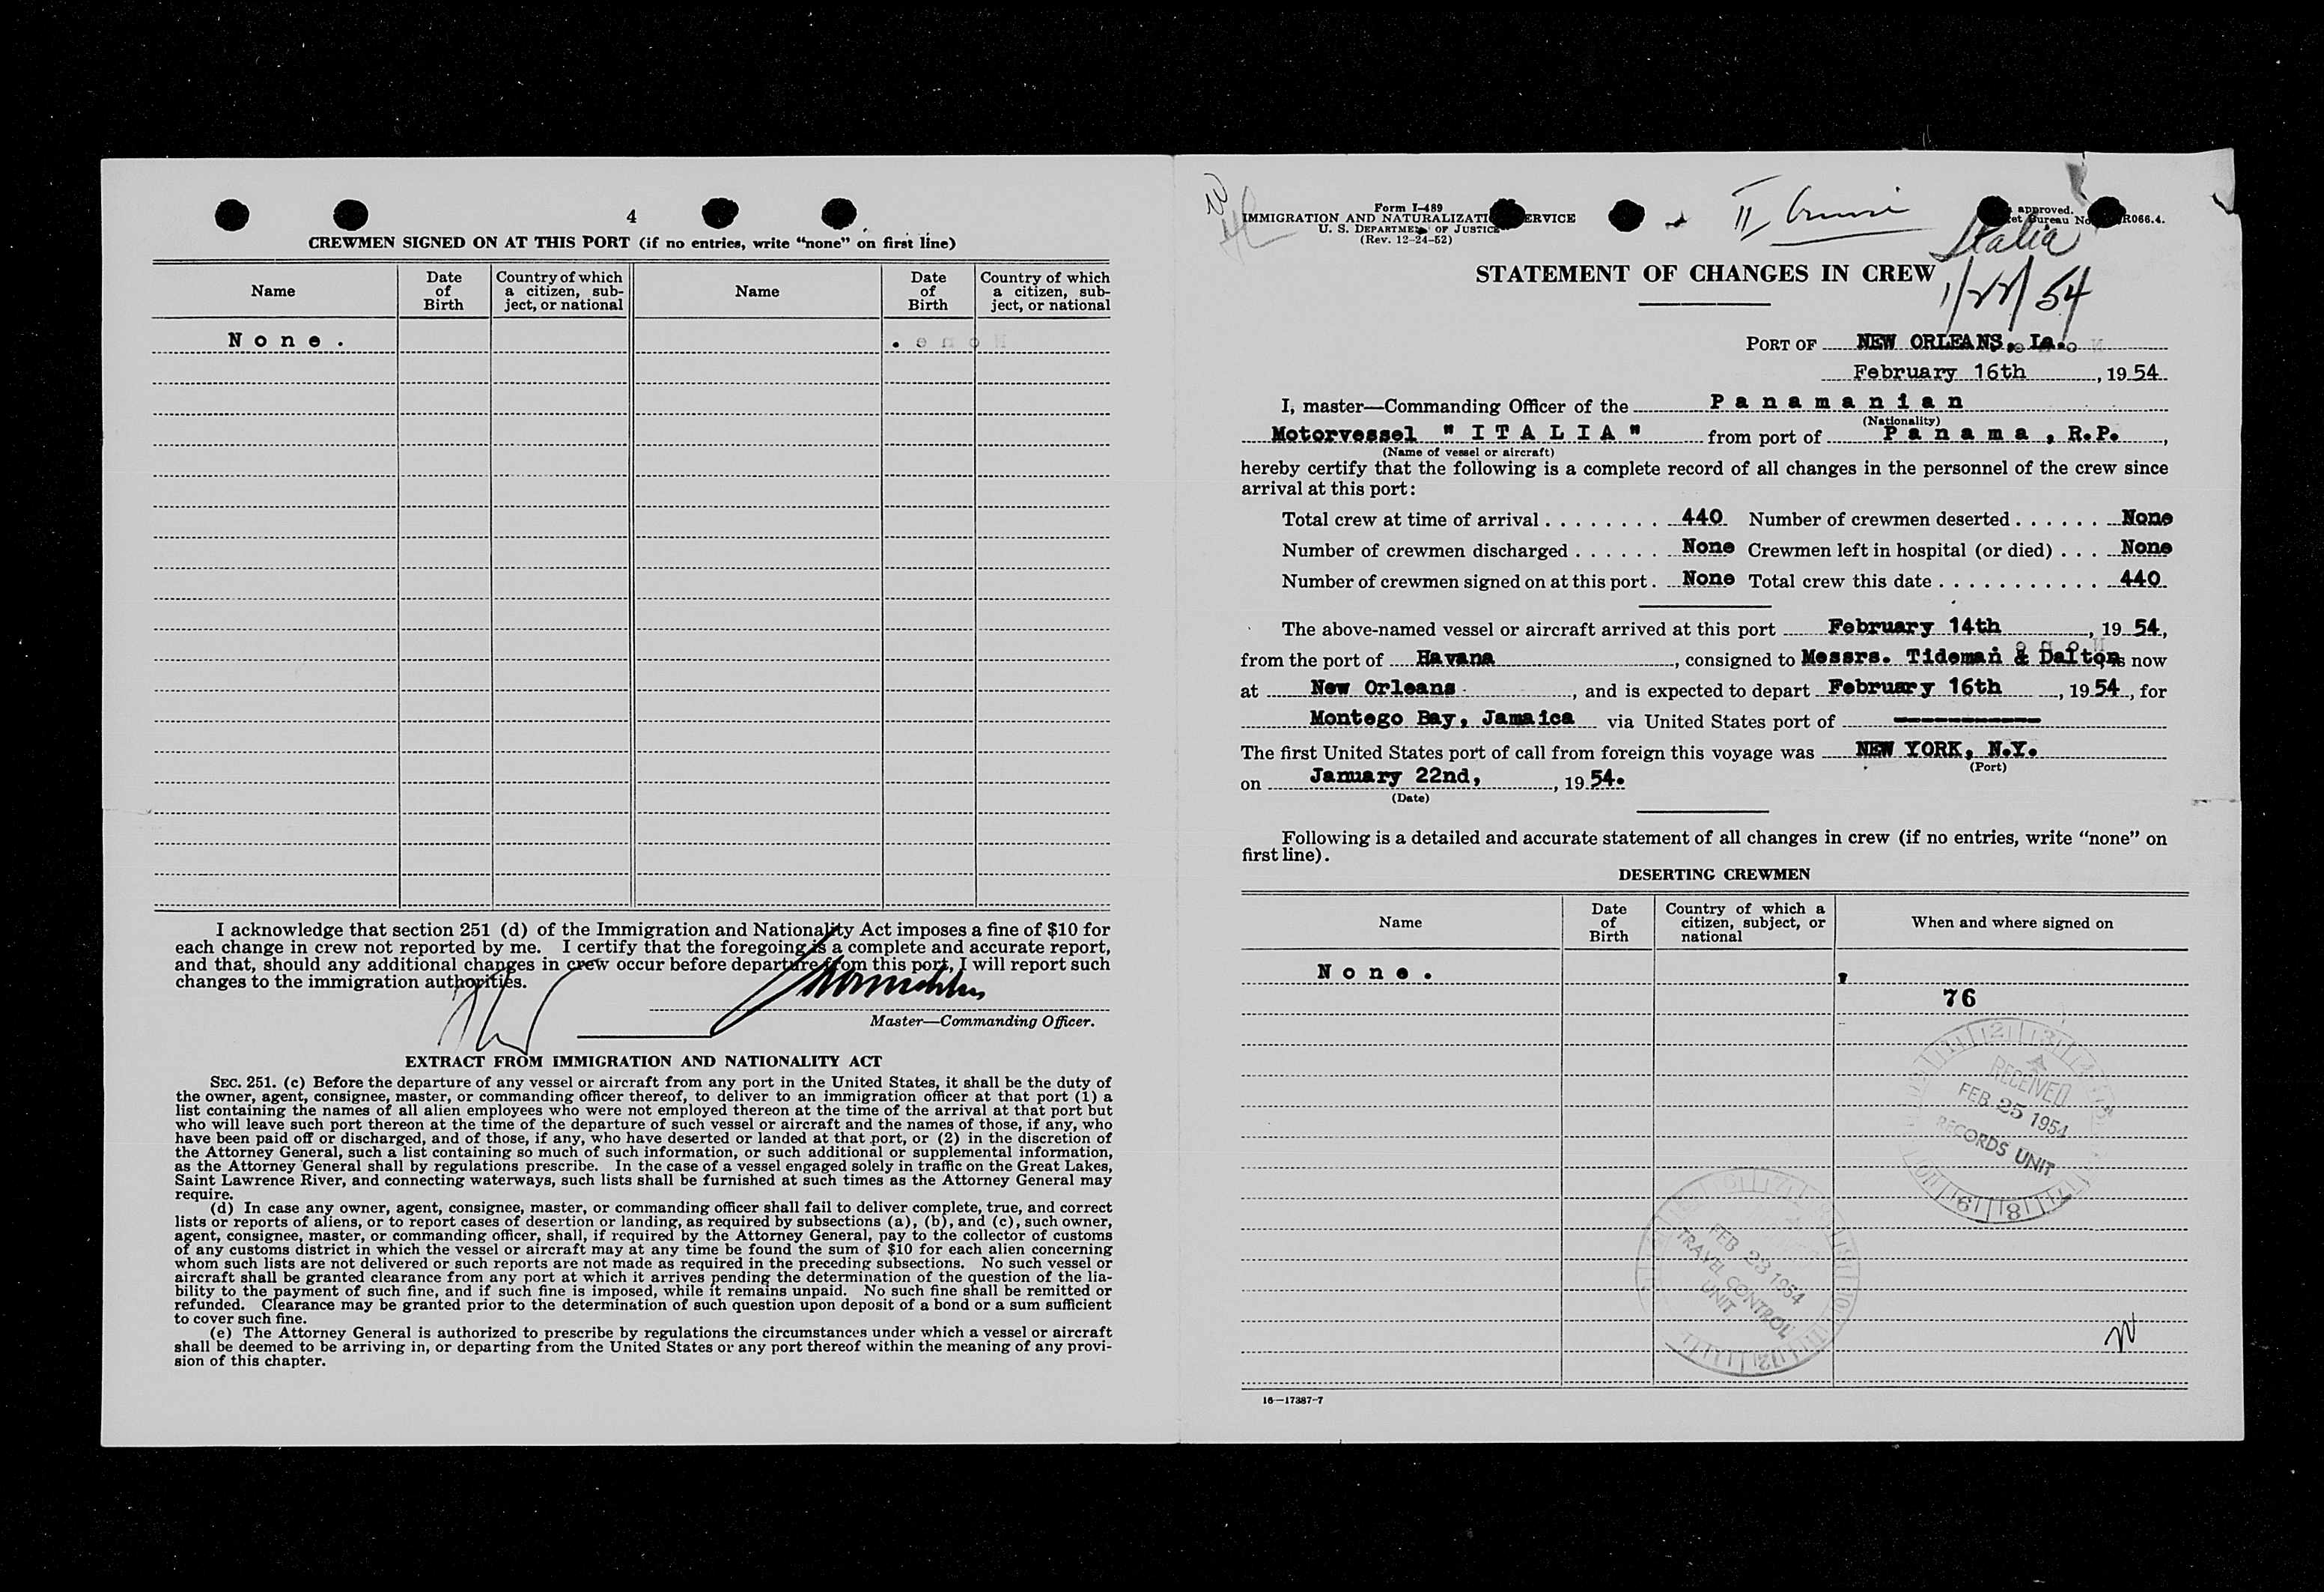 4
CREWMEN SIGNED ON AT THIS PORT (if no entries, write “none” on first line)
Name
Date of Birth
Country of which a citizen, subject, or national
Name
Date of Birth
Country of which a citizen, subject, or national
None.
I acknowledge that section 251 (d) of the Immigration and Nationality Act imposes a fine of $10 for
each change in crew not reported by me. I certify that the foregoing is a complete and accurate report,
and that, should any additional changes in crew occur before departure from this port, I will report such
changes to the immigration authorities.
Master—Commanding Officer.
EXTRACT FROM IMMIGRATION AND NATIONALITY ACT
SEC. 251. (c) Before the departure of any vessel or aircraft from any port in the United States, it shall be the duty of
the owner, agent, consignee, master, or commanding officer thereof, to deliver to an immigration officer at that port (1) a
list containing the names of all alien employees who were not employed thereon at the time of the arrival at that port but
who will leave such port thereon at the time of the departure of such vessel or aircraft and the names of those, if any, who
have been paid off or discharged, and of those, if any, who have deserted or landed at that port, or (2) in the discretion of
the Attorney General, such a list containing so much of such information, or such additional or supplemental information,
as the Attorney General shall by regulations prescribe. In the case of a vessel engaged solely in traffic on the Great Lakes,
Saint Lawrence River, and connecting waterways, such lists shall be furnished at such times as the Attorney General may
require.
(d) In case any owner, agent, consignee, master, or commanding officer shall fail to deliver complete, true, and correct
lists or reports of aliens, or to report cases of desertion or landing, as required by subsections (a), (b), and (c), such owner,
agent, consignee, master, or commanding officer, shall, if required by the Attorney General, pay to the collector of customs
of any customs district in which the vessel or aircraft may at any time be found the sum of $10 for each alien concerning
whom such lists are not delivered or such reports are not made as required in the preceding subsections. No such vessel or
aircraft shall be granted clearance from any port at which it arrives pending the determination of the question of the lia-
bility to the payment of such fine, and if such fine is imposed, while it remains unpaid. No such fine shall be remitted or
refunded. Clearance may be granted prior to the determination of such question upon deposit of a bond or a sum sufficient
to cover such fine.
(e) The Attorney General is authorized to prescribe by regulations the circumstances under which a vessel or aircraft
shall be deemed to be arriving in, or departing from the United States or any port thereof within the meaning of any provi-
sion of this chapter.
Form I-489
IMMIGRATION AND NATURALIZATI ERVICE
U. S. DEPARTMENT OF JUSTICE
(Rev. 12-24-52)
II
approved.
et Bureau No R066.4.
Italia
1/22/54
STATEMENT OF CHANGES IN CREW
PORT OF NEW ORLEANS, La.
February 16th, 1954
I, master—Commanding Officer of the Panamanian
(Nationality)
Motorvessel "ITALIA" from port of Panama, R.P.,
(Name of vessel or aircraft)
hereby certify that the following is a complete record of all changes in the personnel of the crew since
arrival at this port:
Total crew at time of arrival........ 440 Number of crewmen deserted...... None
Number of crewmen discharged...... None Crewmen left in hospital (or died)... None
Number of crewmen signed on at this port. None Total crew this date........... 440
The above-named vessel or aircraft arrived at this port February 14th, 1954,
from the port of Havana, consigned to Messrs. Tideman & Dalton is now
at New Orleans, and is expected to depart February 16th, 1954, for
Montego Bay, Jamaica via United States port of -----------
The first United States port of call from foreign this voyage was NEW YORK, N.Y.
(Port)
on January 22nd, , 1954.
(Date)
Following is a detailed and accurate statement of all changes in crew (if no entries, write “none” on
first line).
DESERTING CREWMEN
Name
Date of Birth
Country of which a citizen, subject, or national
When and where signed on
None.
76
RECEIVED
FEB 25 1954
RECORDS UNIT
FEB 23 1954
TRAVEL CONTROL
UNIT
16—17387-7